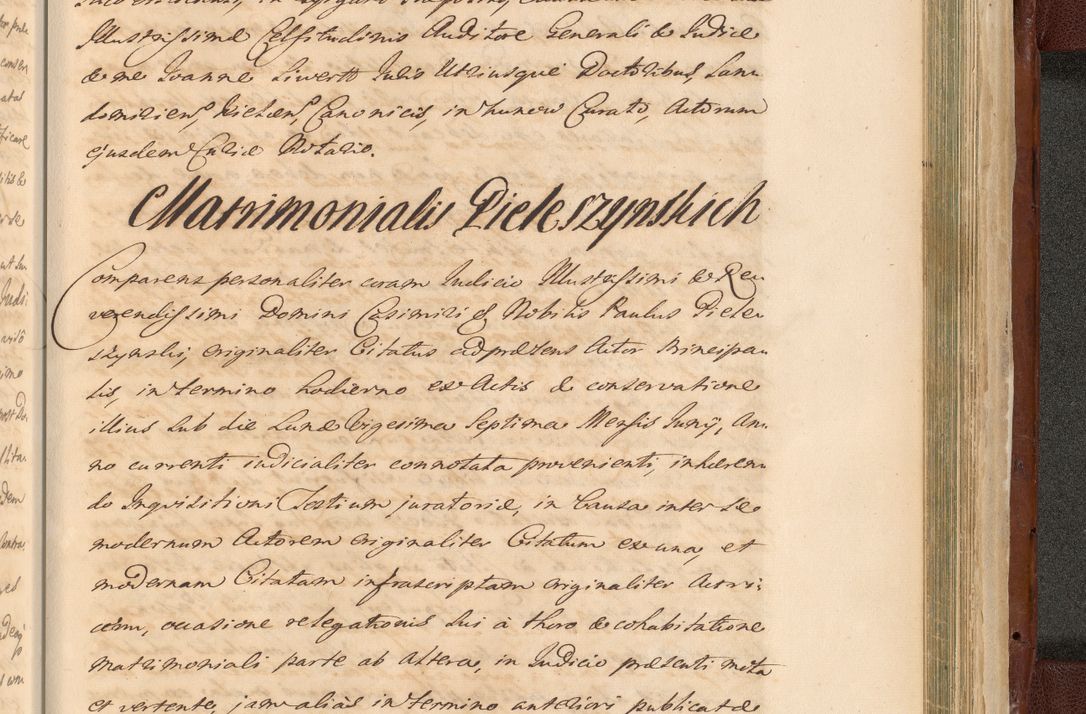 Illustrissimæ Celsitudinis Auditore Generali & Judice
& me Joanne Siwertt Juris Utriusque Doctoribus, San-
domirien, Kielcen, Canonicis, in Kunow Curato, Actorum
ejusdem Curiæ Notario.
Matrimonialis Piekeszynskich
Comparens personaliter coram Judicio Illustrissimi & Reve-
verendissimi Domini Casimiri & Nobilis Paulus Pieke-
szynski, originaliter Citatus ad præsens Actor Principa-
lis, in termino hodierno ex Actis & conservatione
illius sub die Lunæ Vigesima Septima Mensis Junij, An-
no currenti judicialiter connotata provenienti, inhæren-
do Inquisitioni Testium juratoriæ, in Causa inter se
modernum Actorem originaliter Citatum ex una, et
modernam Citatam infrascriptam originaliter Actri-
cem, occasione relegationis sui à thoro & cohabitatione
matrimoniali parte ab altera, in Judicio præsenti mota
et vertente, jam aliàs in termino anteriori publicatæ